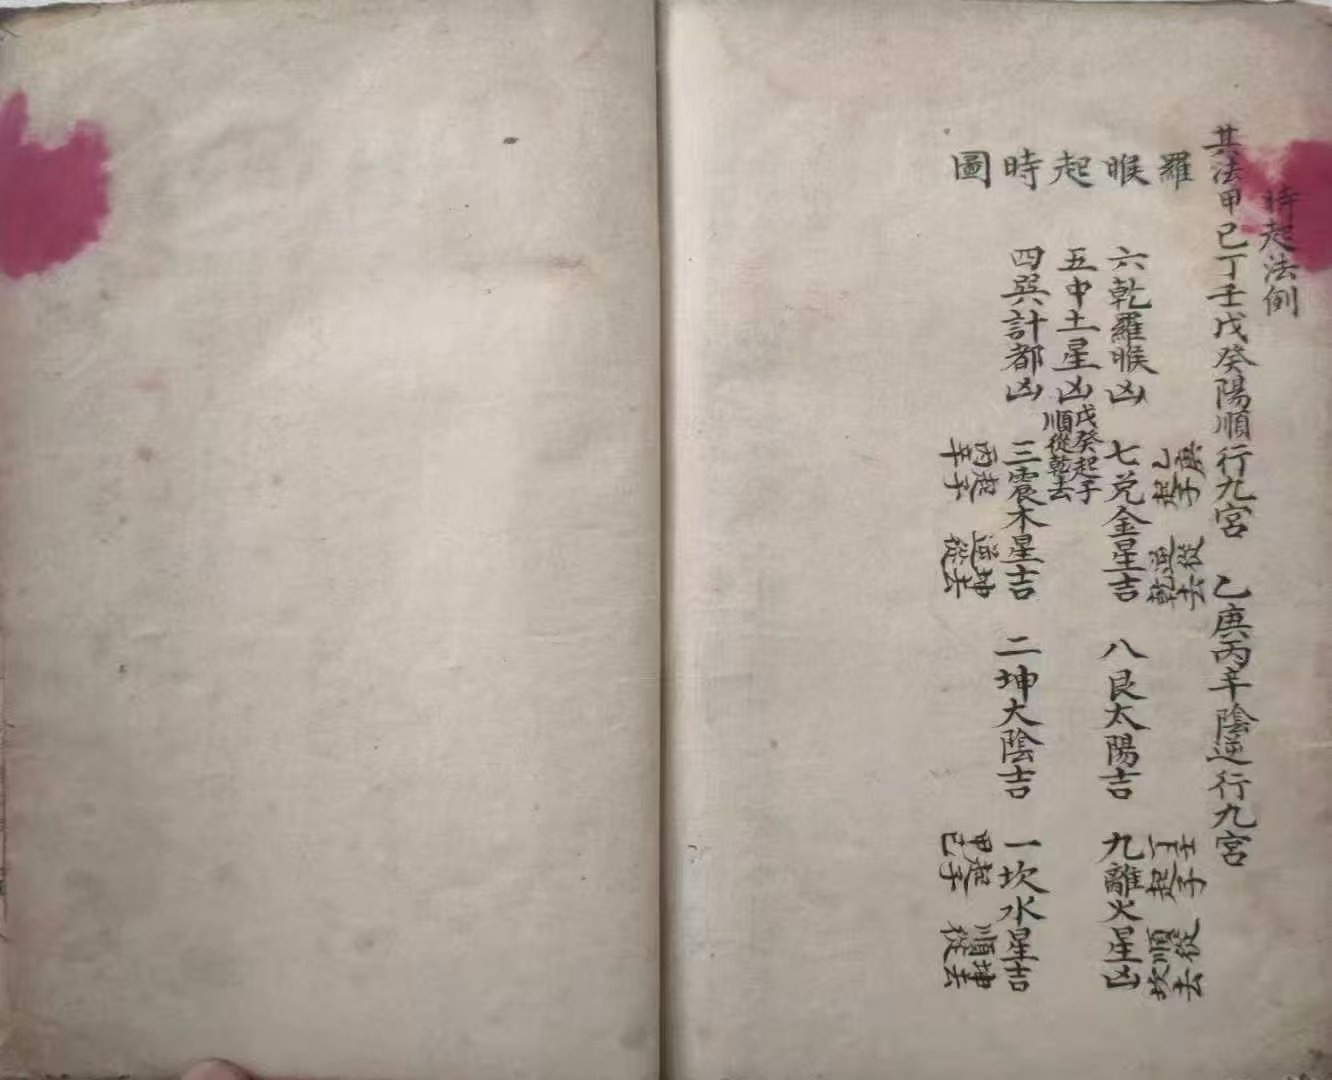 時起法例
其法甲己丁壬戊癸陽順行九宮 乙庚丙辛陰逆行九宮
羅睺起時圖
乙庚起子 逆從乾去
丁壬起子 順從坎去
六乾羅睺凶 七兌金星吉 八艮太陽吉 九離火星凶
五中土星凶
戊癸起子
順從乾去
四巽計都凶 三震木星吉 二坤大陰吉 一坎水星吉
丙辛起子 逆從坤去
甲己起子 順從坤去